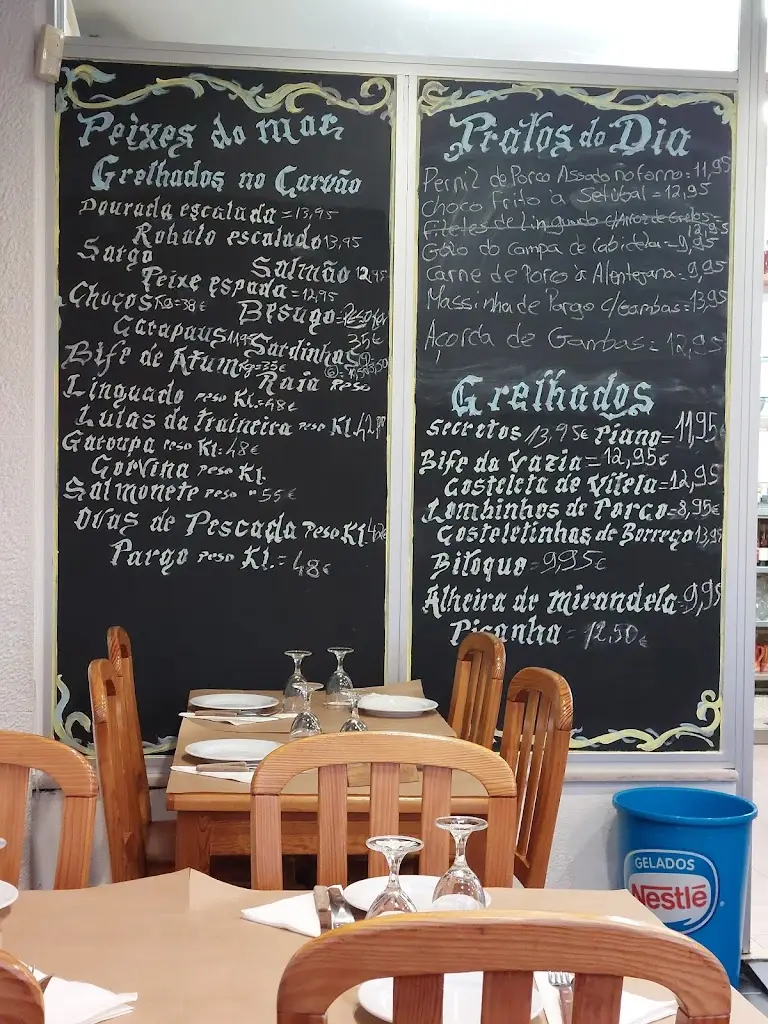 Peixes do mar
Grelhados no Carvão
Dourada escalada = 13,95
Robalo escalado 13,95
Sargo
Salmão 12,95
Peixe espada = 12,95
Chocos Kg = 38€
Besugo
Carapaus 35€
Sardinhas
Bife de Atum Kg = 35€
Raia Peso
Linguado Peso Kl. = 48€
Lulas da traineira Peso Kl. 42
Garoupa Peso Kl: 48€
Corvina Peso Kl.
Salmonete Peso " 55€
Ovas de Pescada Peso Kl. 42€
Pargo Peso Kl. = 48€
Pratos do Dia
Pernil de Porco Assado no Forno = 11,95
Choco Frito à Setúbal = 12,95
Filetes de Linguado c/Arroz de = 12,95
Galo do campo de Cabidela = 9,95
Carne de Porco à Alentejana = 9,95
Massinha de Pargo c/Gambas = 13,95
Açorda de Gambas = 12,95
Grelhados
Secretos 13,95€ Piano = 11,95
Bife da Vazia = 12,95€
Costeleta de Vitela = 12,95
Lombinhos de Porco = 8,95€
Costeletinhas de Borrego 13,95
Bitoque = 9,95€
Alheira de mirandela = 9,95
Picanha = 12,50€
GELADOS
Nestlé